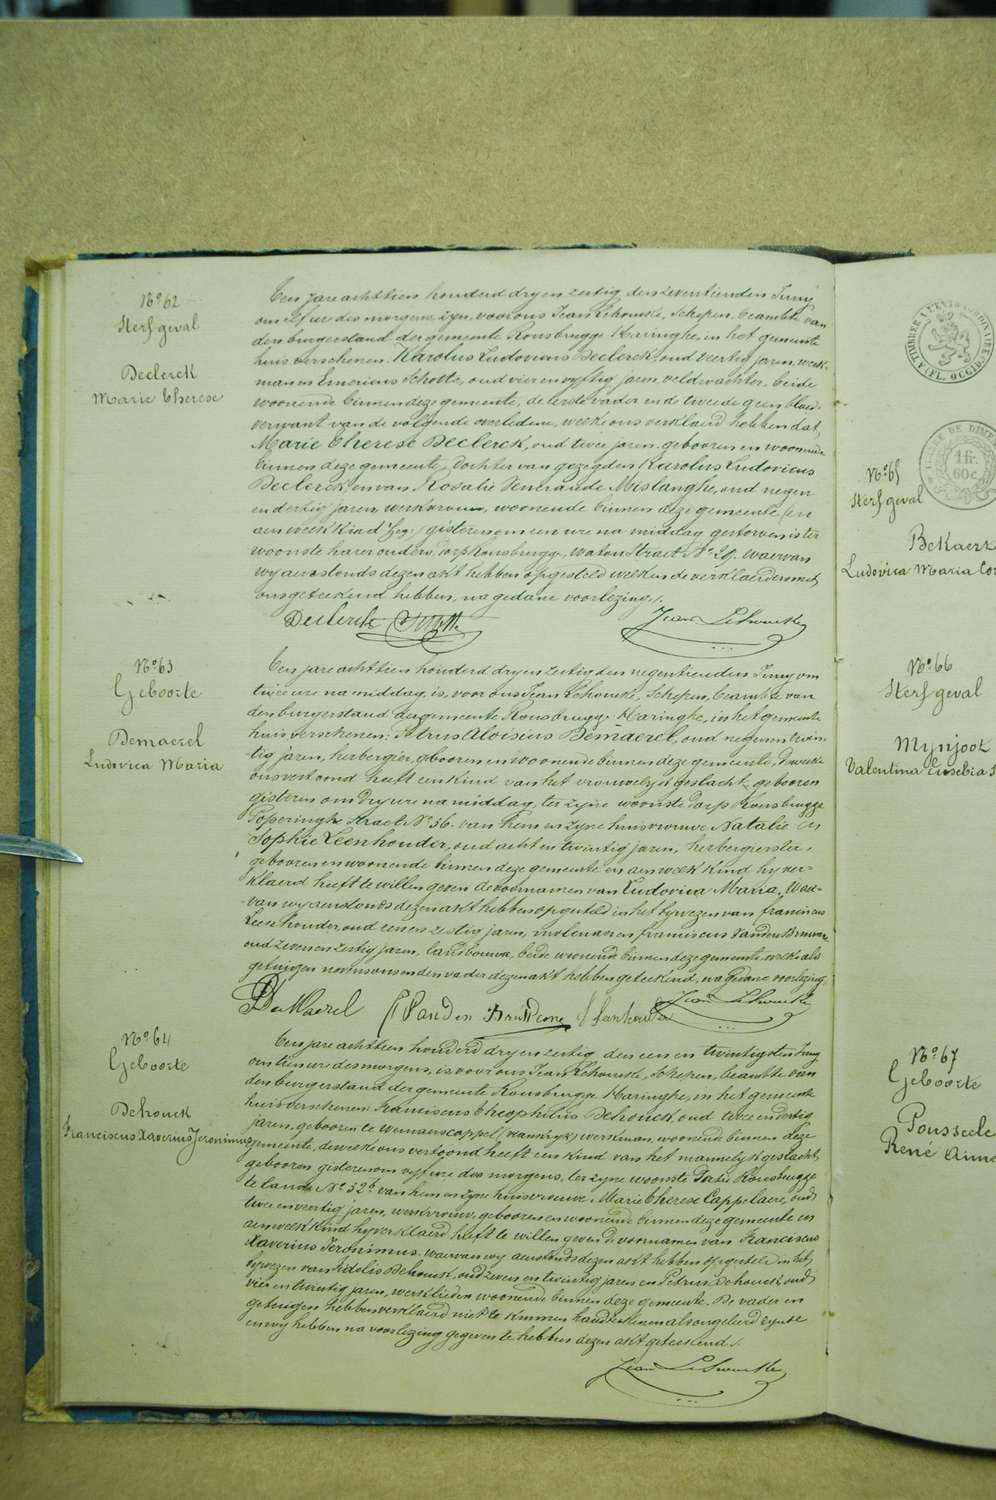 N° 62
Sterfgeval
Declerck
Marie Therese
Ten jare achttien honderd dry en zestig, den zeventienden Juny,
om elf ure des morgens, zyn voor ons Jean Lehoucke, Schepen, beambte van
den burgerstand der gemeente Rousbrugge Haringhe, in het gemeente
huis verschenen Karolus Ludovicus Declerck, oud veertig jaren, werk-
man en Emerius Scholte, oud vier en vyftig jaren, veldwachter, beide
woonende binnen deze gemeente, de eerste vader en de tweede geen bloed-
verwant van de volgende overledene, welke ons verklaerd hebben dat,
Marie Therese Declerck, oud twee jaren, gebooren en woonende
binnen deze gemeente, dochter van gezegden Karolus Ludovicus
Declerck, en van Rosalie Venerande Mislanghe, oud negen
en dertig jaren, werkvrouw, woonende binnen deze gemeente (en
aen welk kind zeg:) gisteren om een ure na middag gestorven is ter
woonste harer ouders, dorp Rousbrugge, Watou Straet N° 29. waervan
wy aenstonds dezen akt hebben opgesteld welken de verklaerders met
ons geteekend hebben, na gedane voorlezing.
Declerck Scholte Jean Lehoucke
N° 63
Geboorte
Demaerel
Ludovica Maria
Ten jare achttien honderd dry en zestig den negentienden Juny om
twee ure na middag, is, voor ons Jean Lehoucke, Schepen, beambte van
den burgerstand der gemeente Rousbrugge Haringhe, in het gemeente
huis verschenen: Petrus Aloisius Demaerel, oud negen en twin-
tig jaren, herbergier, gebooren en woonende binnen deze gemeente, dewelke
ons vertoond heeft een kind van het vrouwelyk geslacht, gebooren
gisteren om dry ure na middag, ter zyne woonste dorp Rousbrugge
Poperinghe Straet N° 56. van hem en zyne huisvrouwe Natalie
Sophie Leenhouder, oud acht en twintig jaren, herbergierster,
gebooren en woonende binnen deze gemeente en aen welk kind hy ver-
klaerd heeft te willen geven de voornamen van Ludovica Maria, Waer-
van wy aenstonds dezen akt hebben opgesteld in het bywezen van franciscus
Leenhouder, oud een en zestig jaren, molenaer en franciscus Vanden Bruwaene
oud zeven en zestig jaren, landbouwer, beide woonende binnen deze gemeente, welke als
getuigen nevens ons en den vader dezen akt hebben geteekend, na gedane voorlezing.
DeMaerel Jean Lehoucke
N° 64
Geboorte
Dehouck
Franciscus Xaverius Jeronimus
Ten jare achttien honderd dry en zestig, den een en twintigsten Juny
om tien ure des morgens, is voor ons Jean Lehoucke, Schepen, beambte van
den burgerstand der gemeente Rousbrugge Haringhe, in het gemeente
huis verschenen Franciscus Theophilus Dehouck, oud twee en dertig
jaren, gebooren te Wemaerscappel (frankryk) werkman, woonende binnen deze
gemeente, dewelke ons vertoond heeft een kind van het mannelyk geslacht,
gebooren gisteren om vyf ure des morgens, ter zyne woonste Rousbrugge
te lande N° 32b van hem en zyne huisvrouwe, Marie Therese Cappelaere, oud
twee en veertig jaren, werkvrouw, gebooren en woonende binnen deze gemeente en
aen welk kind hy verklaerd heeft te willen geven de voornamen van Franciscus
Xaverius Jeronimus. waervan wy aenstonds dezen akt hebben opgesteld in het
bywezen van Fidelis Dehouck, oud zeven en twintig jaren en Petrus Dehouck, oud
vier en twintig jaren, werklieden woonende binnen deze gemeente. De vader en
getuigen hebben verklaerd niet te kunnen handteekenen als ongeleerd zynde
en wy hebben na voorlezing gegeven te hebben dezen akt geteekend.
Jean Lehoucke
N° 65
Sterfgeval
Bekaert
Ludovica Maria
N° 66
Sterfgeval
Mynjoot
Valentina Eusebia
N° 67
Geboorte
Pousseele
René Aimé
1 fr.
60 c.